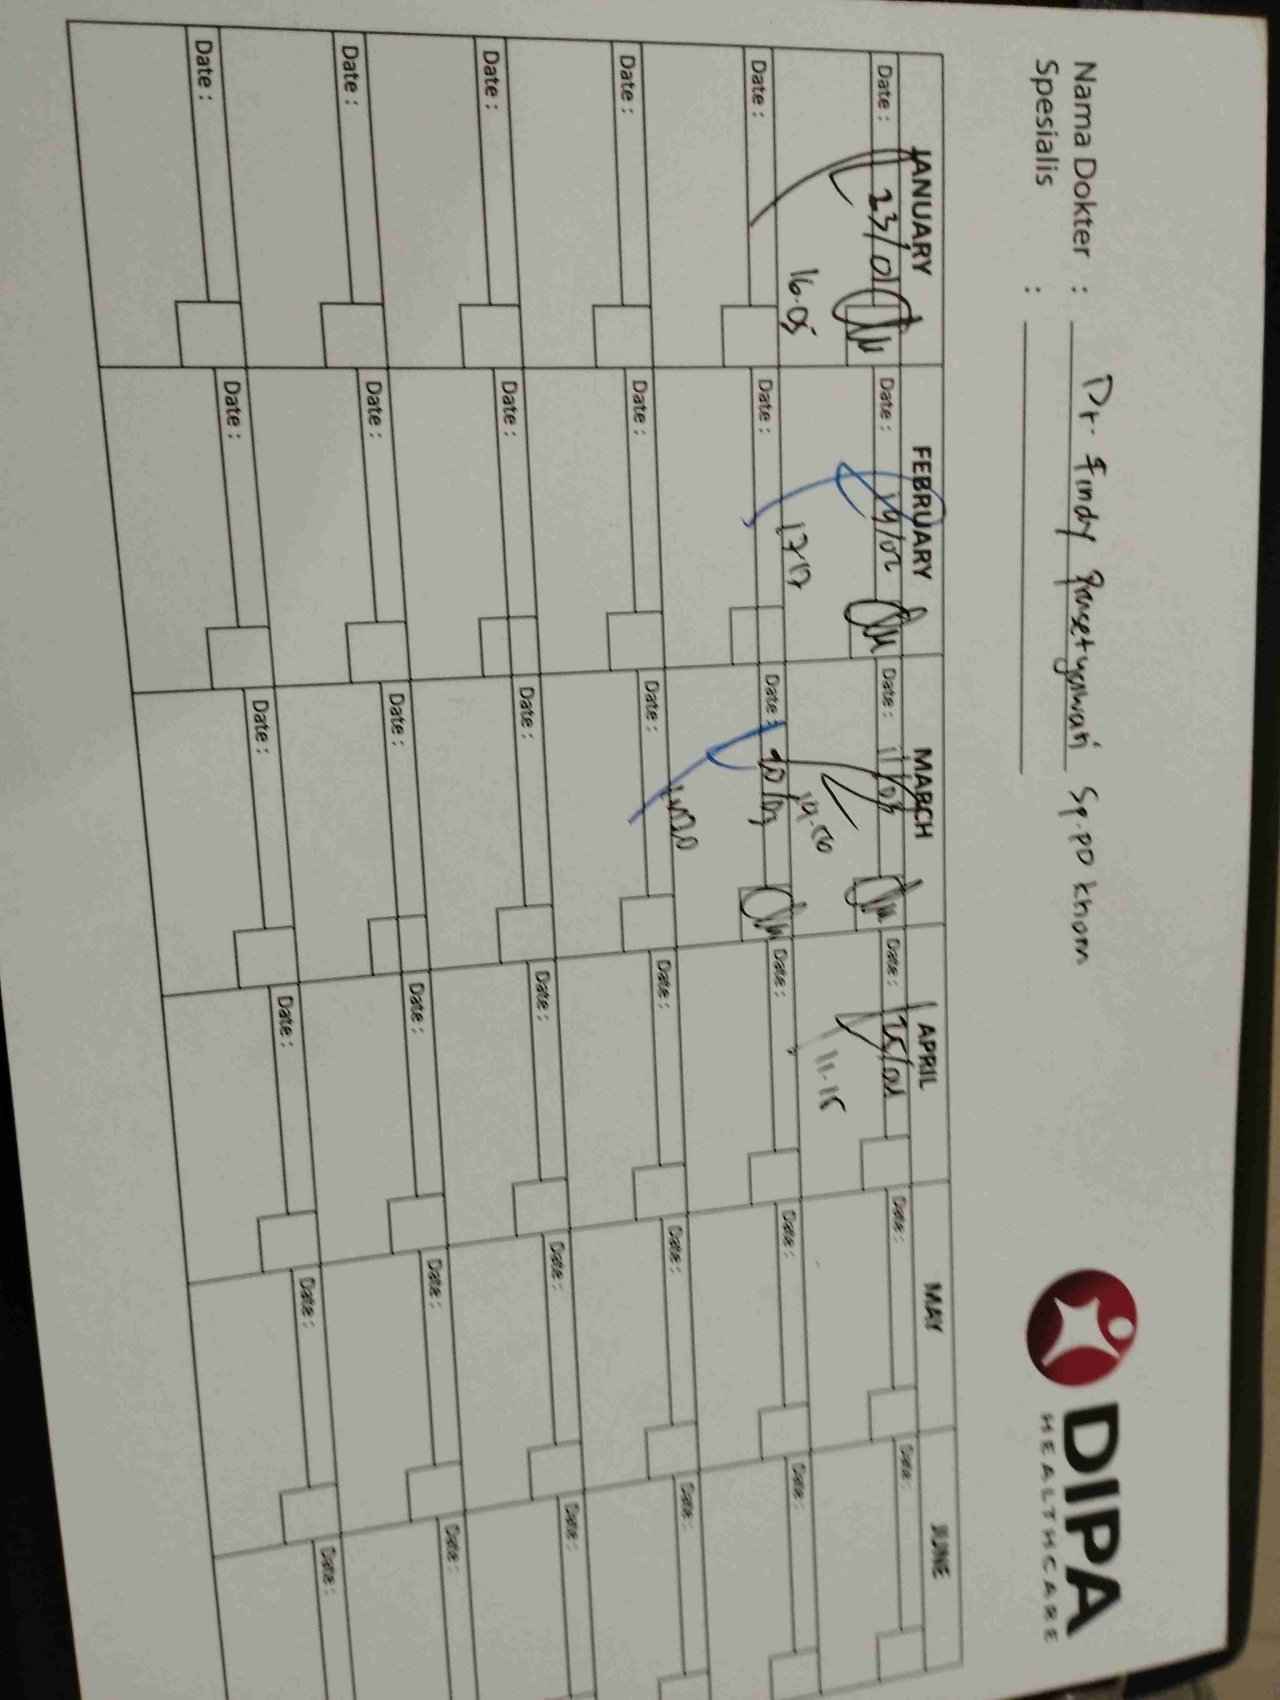 Nama Dokter : Dr. Findy Prasetyawati Sp.PD KHOM
Spesialis :
DIPA
HEALTHCARE
JANUARY FEBRUARY MARCH APRIL MAY JUNE
Date : 23/01 Date : 19/02 Date : 11/03 Date : 25/04 Date : Date :
16.05 17.17 19.00 11.15
Date : Date : Date : 20/03 Date : Date : Date :
Date : Date : Date : Date : Date : Date :
Date : Date : Date : Date : Date : Date :
Date : Date : Date : Date : Date : Date :
Date : Date : Date : Date : Date : Date :